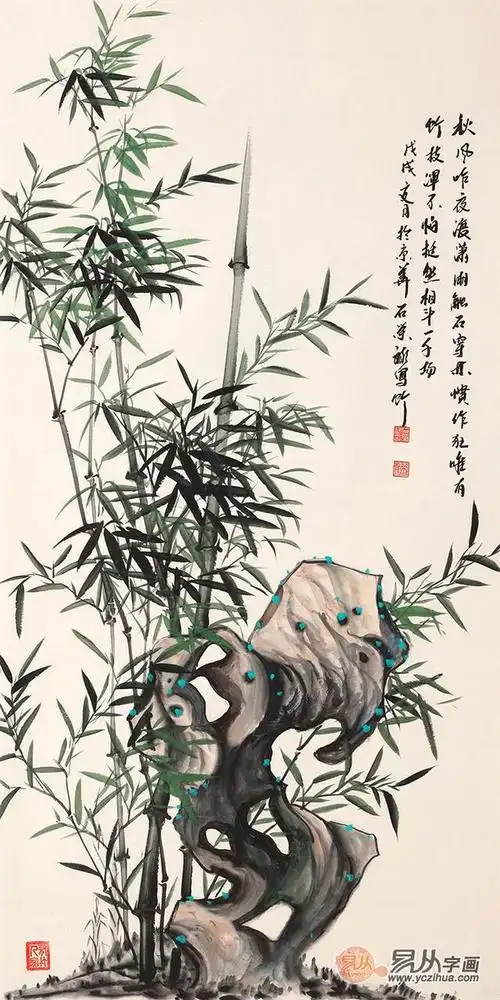 秋风昨夜渡潇湘觸石穿林慣作狂唯有
竹枝渾不怕挺然相斗一千场
戊戌夏月於京華石荣禄寫竹
易从字画
www.yczihua.com